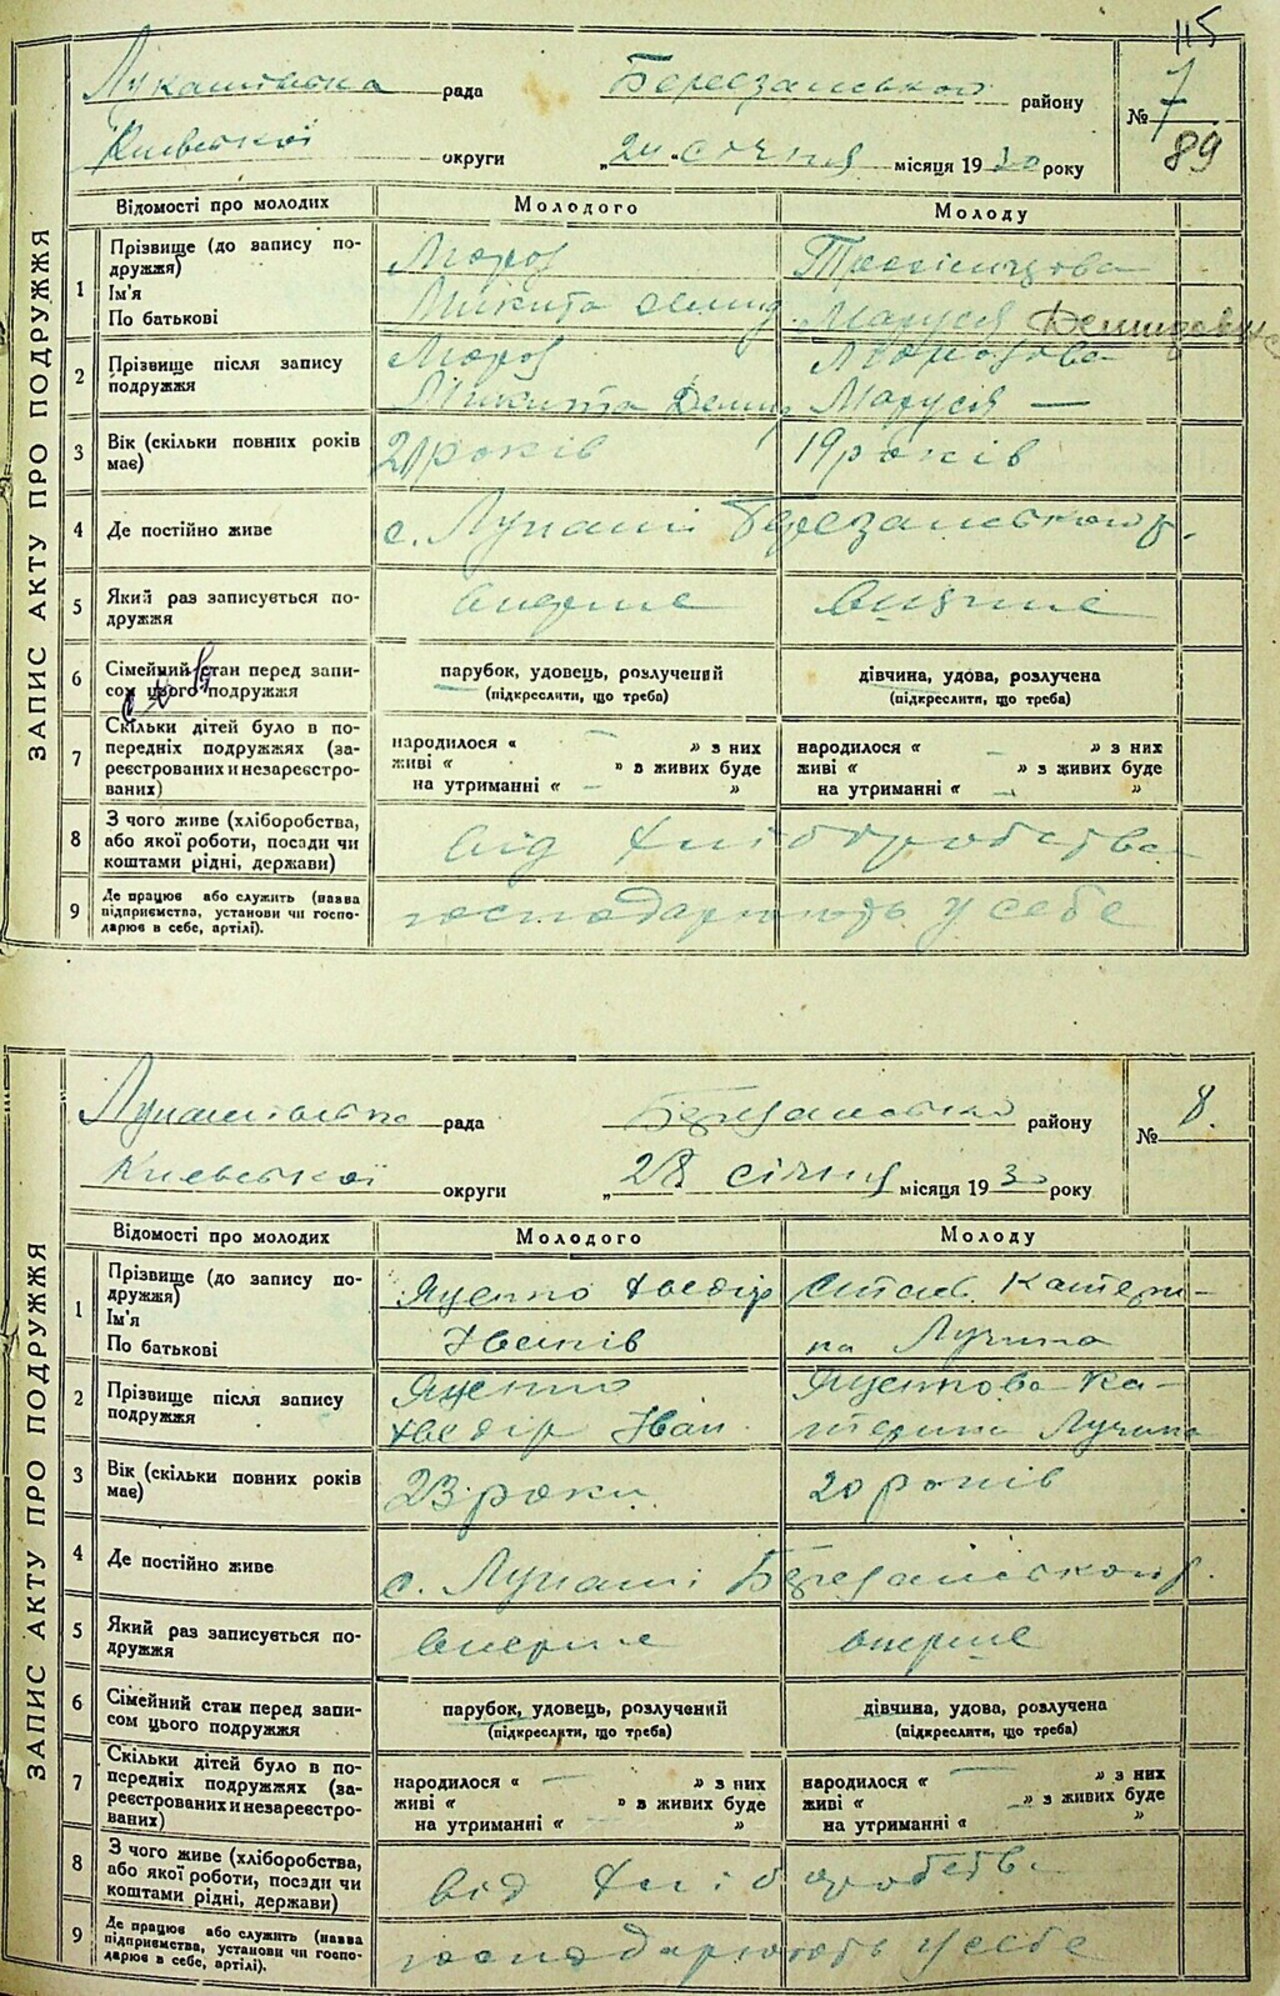 115
Лукашівська рада Березанського району № 7
89
Київської округи „24“ січня місяця 1930 року
ЗАПИС АКТУ ПРО ПОДРУЖЖЯ
Відомості про молодих Молодого Молоду
1 Прізвище (до запису по-
дружжя)
Ім'я
По батькові
Мороз
Микита Демид.
Маруся Демидовна
2 Прізвище після запису
подружжя
Мороз
Микита Демид
Морозова
Маруся —
3 Вік (скільки повних років
має)
20 років 19 років
4 Де постійно живе с. Лукаші Березанського р.
5 Який раз записується по-
дружжя
вперше вперше
6 Сімейний стан перед запи-
сом цього подружжя
парубок, удовець, розлучений
(підкреслити, що треба)
дівчина, удова, розлучена
(підкреслити, що треба)
7 Скільки дітей було в по-
передніх подружжях (за-
реєстрованих и незареєстро-
ваних)
народилося « — » з них
живі « » в живих буде
на утриманні « — »
народилося « — » з них
живі « » з живих буде
на утриманні « — »
8 З чого живе (хліборобства,
або якої роботи, посади чи
коштами рідні, держави)
від хліборобства
9 Де працює або служить (назва
підприємства, установи чи госпо-
дарює в себе, артілі).
господарюють у себе
Лукашівська рада Березанського району № 8.
Київської округи „28“ січня місяця 1930 року
ЗАПИС АКТУ ПРО ПОДРУЖЖЯ
Відомості про молодих Молодого Молоду
1 Прізвище (до запису по-
дружжя)
Ім'я
По батькові
Яценко Хведір
Іванів
Катери-
на Лукина
2 Прізвище після запису
подружжя
Яценко
Хведір Іван
Яценкова Ка-
терина Лукина
3 Вік (скільки повних років
має)
23 роки 20 років
4 Де постійно живе с. Лукаші Березанського р.
5 Який раз записується по-
дружжя
вперше вперше
6 Сімейний стан перед запи-
сом цього подружжя
парубок, удовець, розлучений
(підкреслити, що треба)
дівчина, удова, розлучена
(підкреслити, що треба)
7 Скільки дітей було в по-
передніх подружжях (за-
реєстрованих и незареєстро-
ваних)
народилося « — » з них
живі « » в живих буде
на утриманні « »
народилося « — » з них
живі « — » з живих буде
на утриманні « »
8 З чого живе (хліборобства,
або якої роботи, посади чи
коштами рідні, держави)
від хліборобства
9 Де працює або служить (назва
підприємства, установи чи госпо-
дарює в себе, артілі).
господарюють у себе